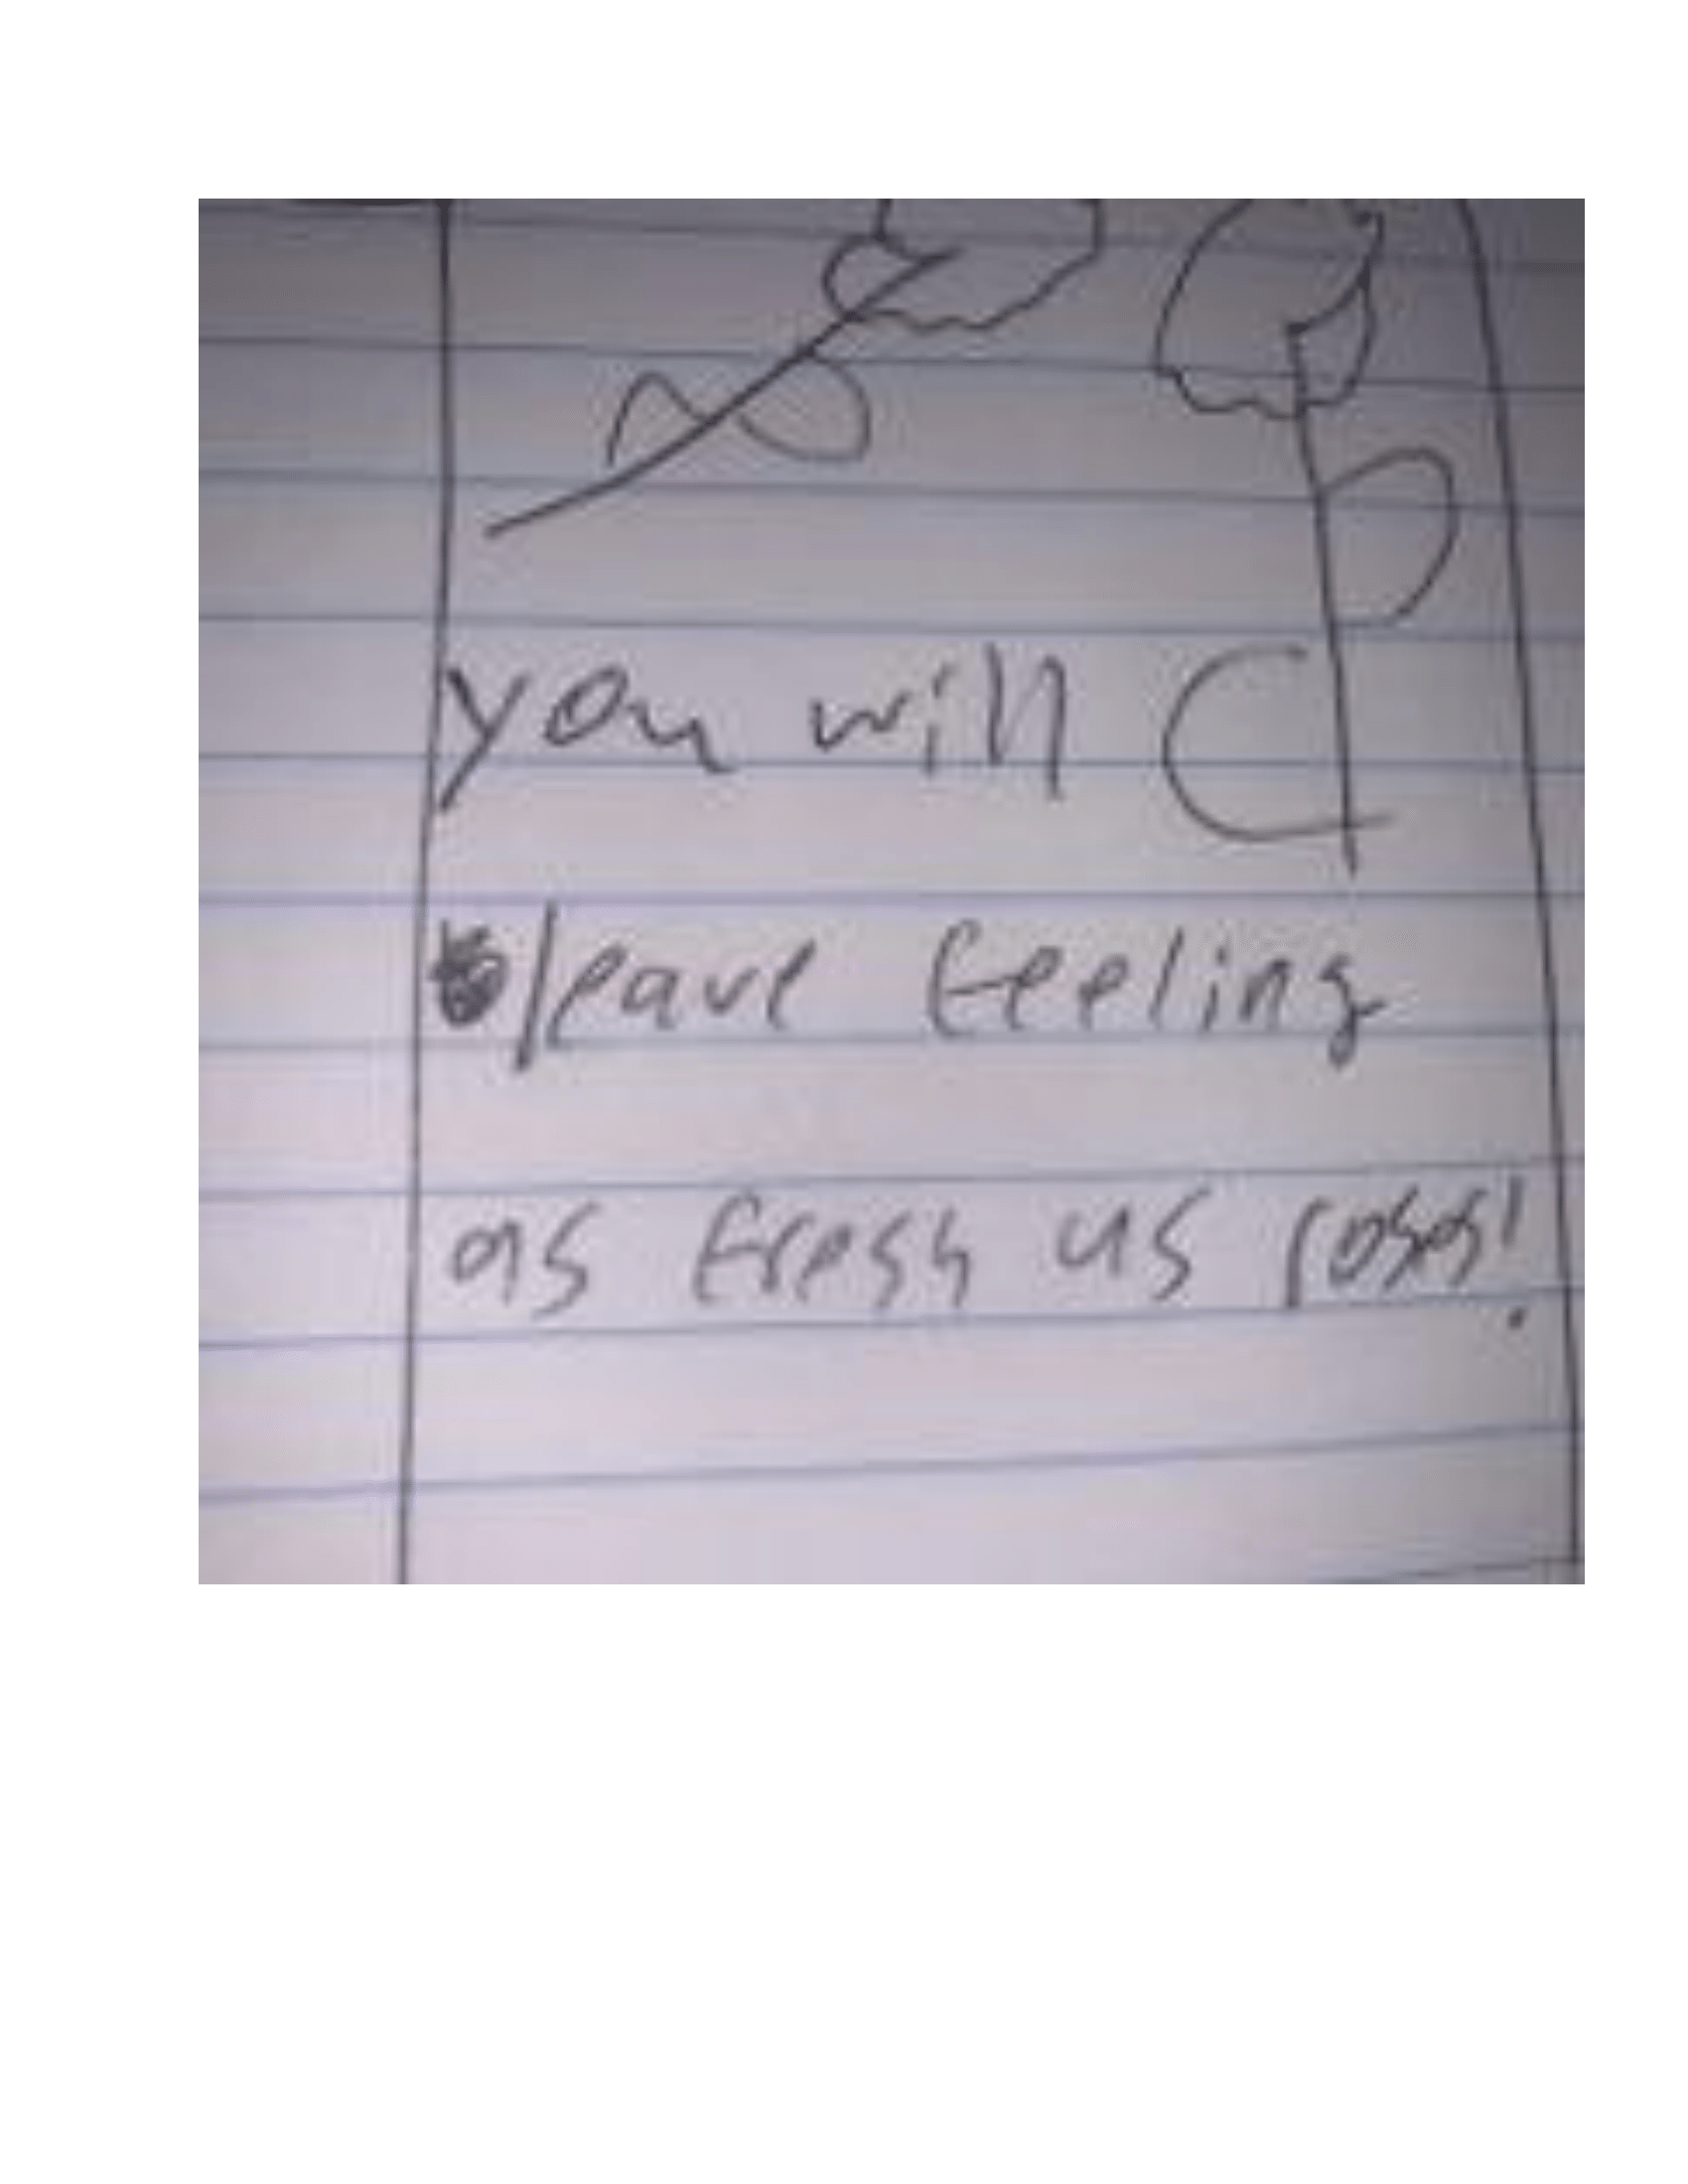 you will
leave feeling
as fresh as roses!